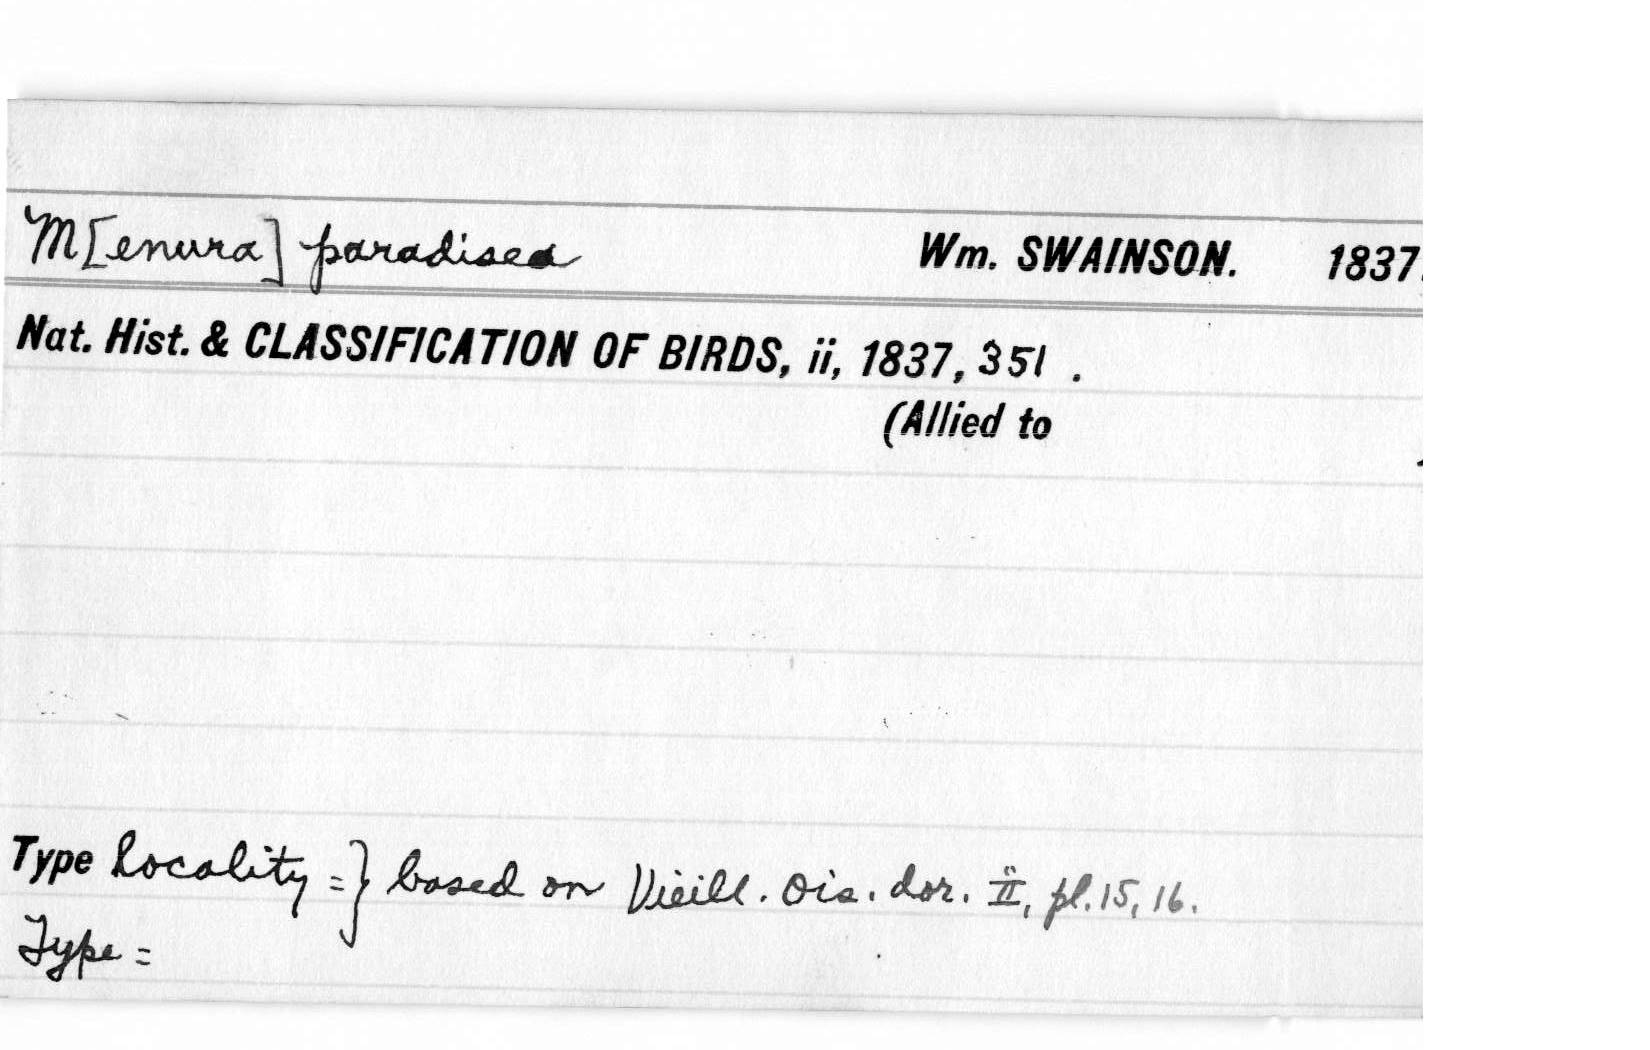 M[enura] paradisea Wm. SWAINSON. 1837.
Nat. Hist. & CLASSIFICATION OF BIRDS, ii, 1837, 351 .
(Allied to
Type Locality = } based on Vieill. Ois. dor. II, pl. 15, 16.
Type =